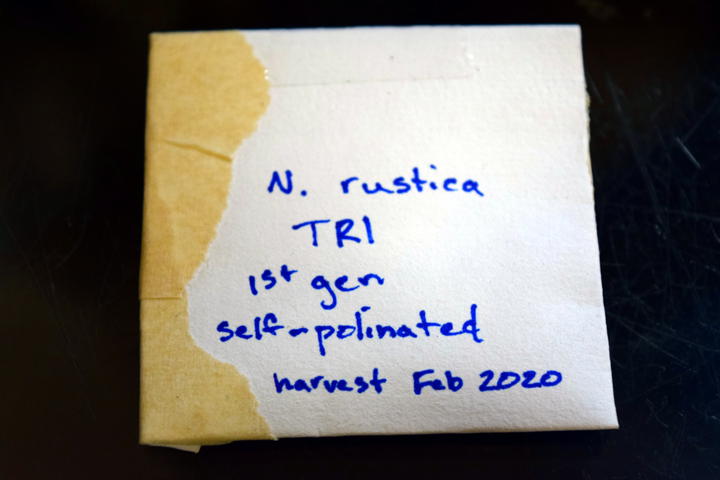 N. rustica
TRI
1st gen
self-polinated
harvest Feb 2020